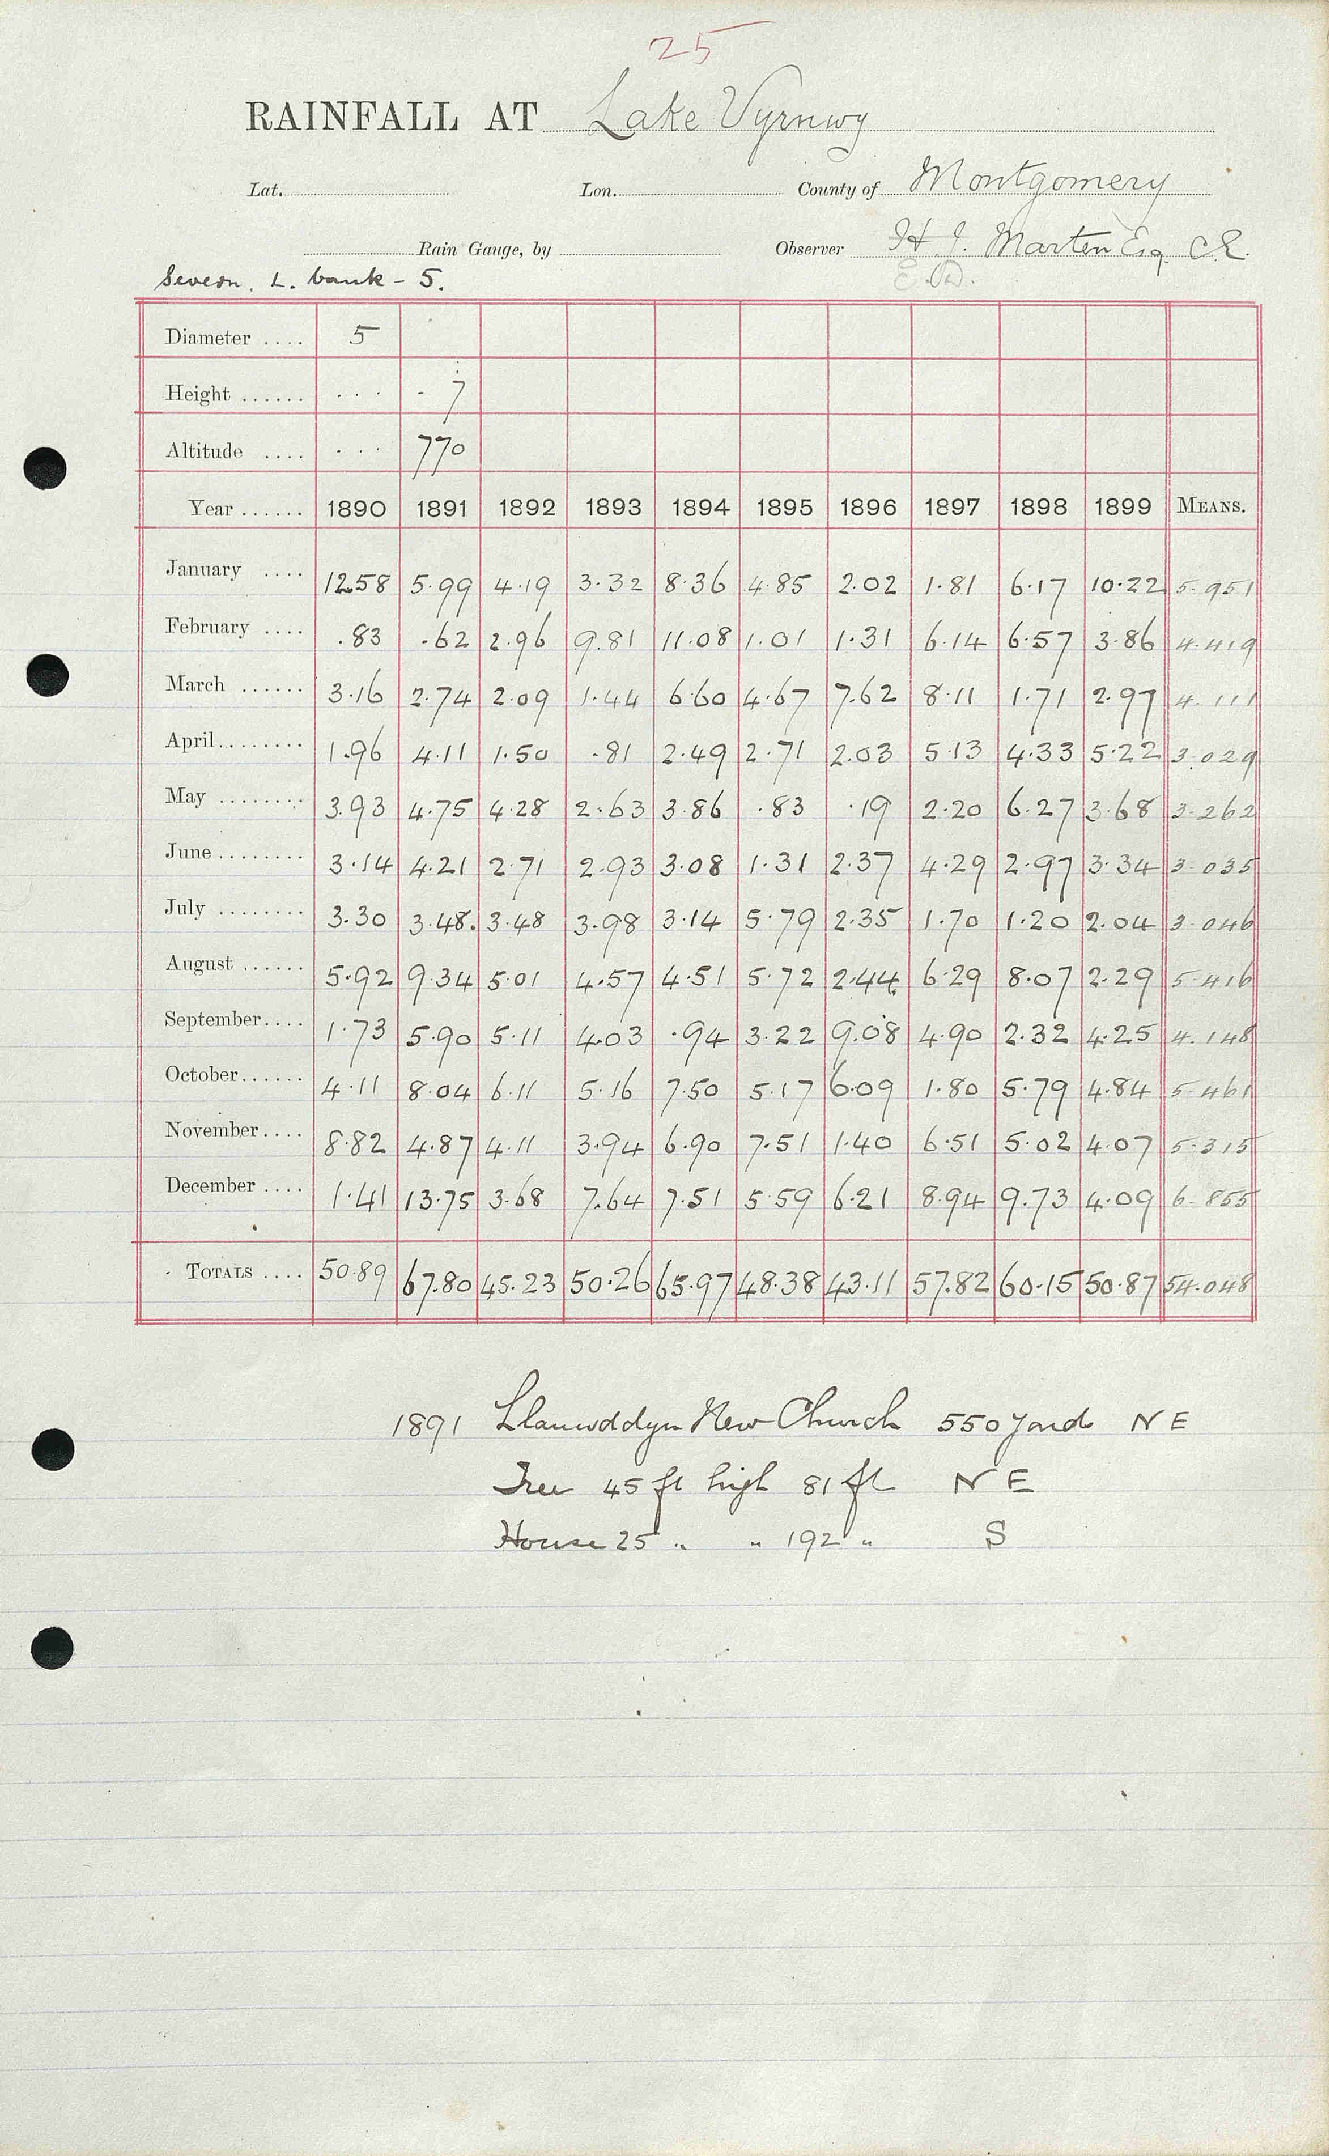 25
RAINFALL AT Lake Vyrnwy
Lat. Lon. County of Montgomery
Rain Gauge, by Observer H. J. Marten Esq C.E.
Severn. L. bank - 5. E.D.
Diameter .... 5
Height ...... ... - 7
Altitude .... ... 770
Year ...... 1890 1891 1892 1893 1894 1895 1896 1897 1898 1899 MEANS.
January .... 12.58 5.99 4.19 3.32 8.36 4.85 2.02 1.81 6.17 10.22 5.951
February .... .83 .62 2.96 9.81 11.08 1.01 1.31 6.14 6.57 3.86 4.419
March ...... 3.16 2.74 2.09 1.44 6.60 4.67 7.62 8.11 1.71 2.97 4.111
April........ 1.96 4.11 1.50 .81 2.49 2.71 2.03 5.13 4.33 5.22 3.029
May ........ 3.93 4.75 4.28 2.63 3.86 .83 .19 2.20 6.27 3.68 3.262
June........ 3.14 4.21 2.71 2.93 3.08 1.31 2.37 4.29 2.97 3.34 3.035
July ........ 3.30 3.48. 3.48 3.98 3.14 5.79 2.35 1.70 1.20 2.04 3.046
August ...... 5.92 9.34 5.01 4.57 4.51 5.72 2.44 6.29 8.07 2.29 5.416
September.... 1.73 5.90 5.11 4.03 .94 3.22 9.08 4.90 2.32 4.25 4.148
October...... 4.11 8.04 6.11 5.16 7.50 5.17 6.09 1.80 5.79 4.84 5.461
November.... 8.82 4.87 4.11 3.94 6.90 7.51 1.40 6.51 5.02 4.07 5.315
December .... 1.41 13.75 3.68 7.64 7.51 5.59 6.21 8.94 9.73 4.09 6.855
TOTALS .... 50.89 67.80 45.23 50.26 65.97 48.38 43.11 57.82 60.15 50.87 54.048
1891 Llanwddyn New Church 550 yards N E
Tree 45 ft high 81 ft N E
House 25 " " 192 " S